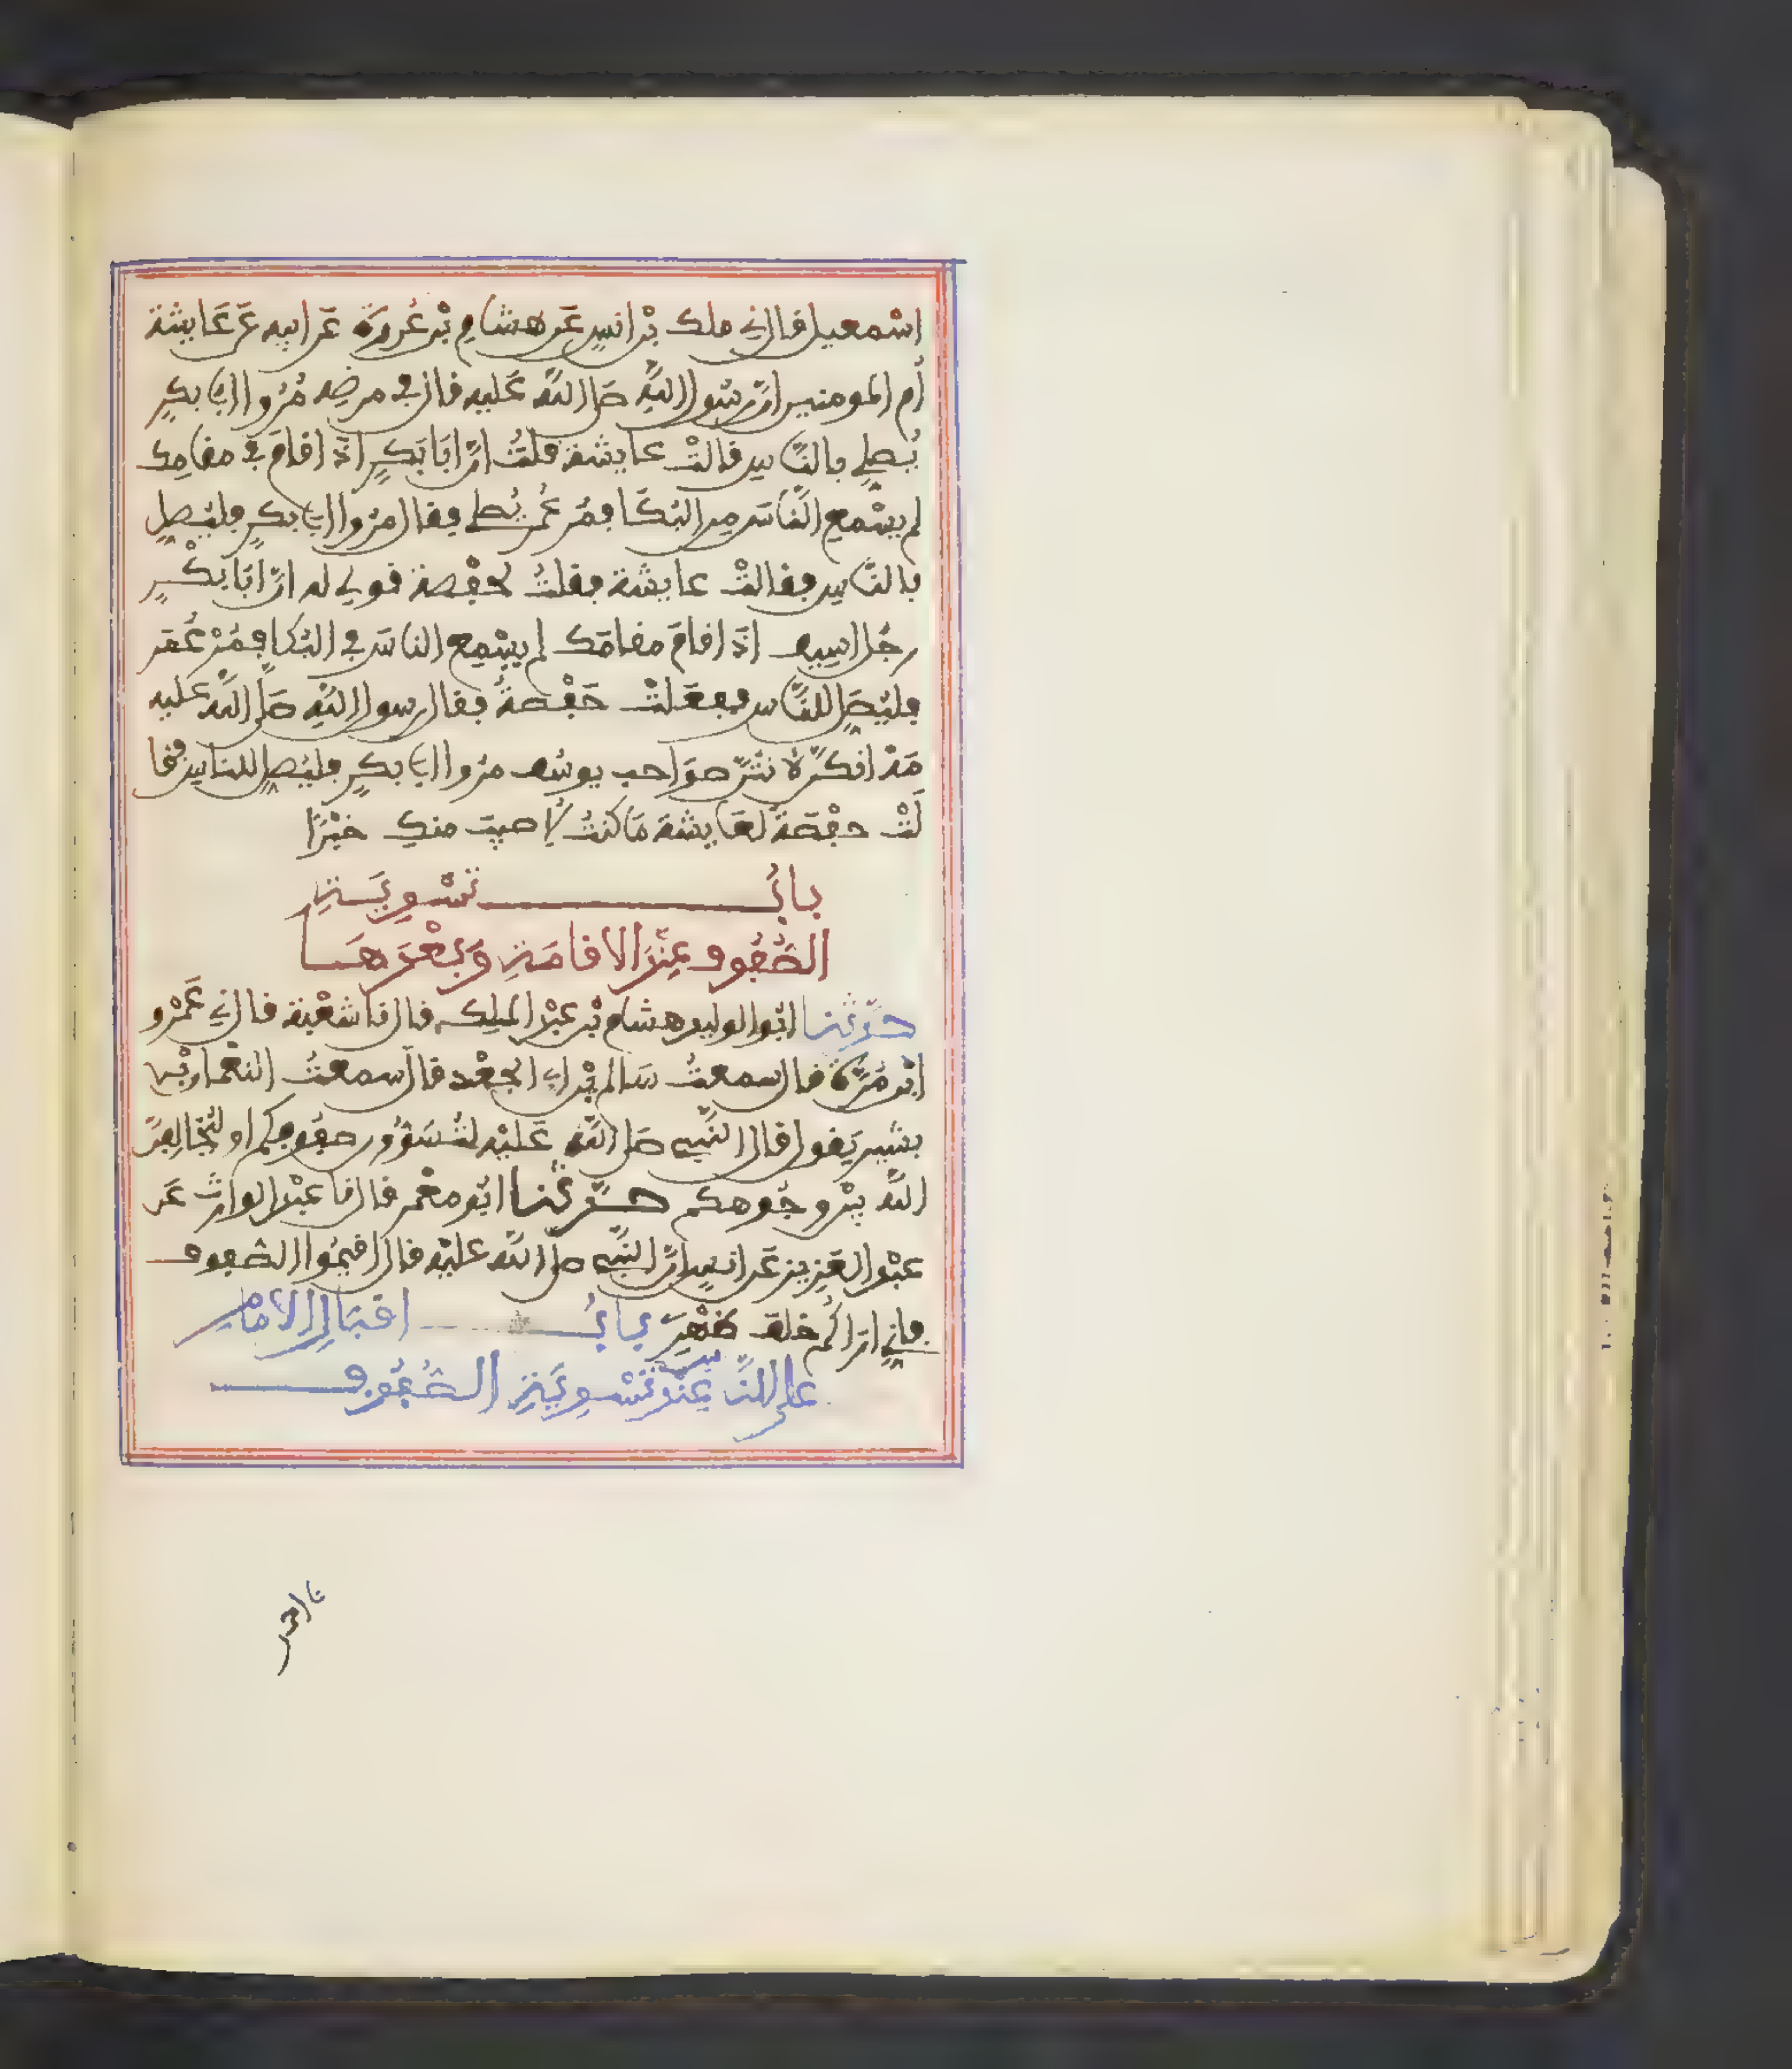 اسْمعيل قال ني ملك بْن انسٍ عَن هشامِ بْن عُروةَ عَن ابيه عَن عَايشة
أُم المومنين انّ رسُول اللهِ صلى اللهُ عَليه قال في مرضِه مُرُوا ابي بكرٍ
يُصلي بالنَّاسِ قالتْ عايشة قلتُ انّ ابَا بَكرٍ اذَا قامَ في مقامِك
لم يسْمع النَّاسَ من البُكَا فمُر عُمر يُصلي فقال مرُوا ابي بكرٍ فليُصلِ
بالنَّاسِ فقالتْ عايشة فقلتُ لحفْصة قولي له انّ ابَا بكْرٍ
رجُل اسيف اذَا قامَ مقامَك لم يسْمِع الناسَ في البُكا فمُرْ عُمَر
فليُصَلِ للنَّاسِ ففعَلتْ حَفْصةُ فقال رسول اللهِ صَلى اللهُ عَليه
مَهْ انكنَّ لانتُنَّ صوَاحب يوسُف مرُوا ابي بكرٍ فليُصلِ للناسِ فقا
لَتْ حفْصَةُ لعَايشة مَا كنتُ لِاصيب منكِ خيْرًا
بابُ تَسْوِيَةِ
الصُّفُوفِ عِنْدَ الاقامَةِ وَبَعْدَهَا
حدَّثنا ابُو الوليد هشام بْن عبْد الملِك قال نا شعْبة قال ني عَمْرو
ابْن مُرَّةَ قال سمعتُ سَالم بْن ابي الجعْد قال سمعتُ النعْمان بْن
بشيرٍ يَقول قال النَّبي صلى اللهُ عَليْه لتُسَوُّون صفُوفكم او ليُخَالِفنّ
اللهُ بيْن وجُوهكم حدَّثنا ابُو معْمر قال نا عبْد الوارث عَن
عبْد العَزِيز عَن انسٍ انّ النبَّي صلى اللهُ عليْه قال اقيمُوا الصفوف
فاني اراكُم خلف ظهْرِي بابُ اقبَالِ الامَامِ
على النَّاسِ عِنْدَ تَسْوِيَةِ الصُّفُوفِ
نا احمد